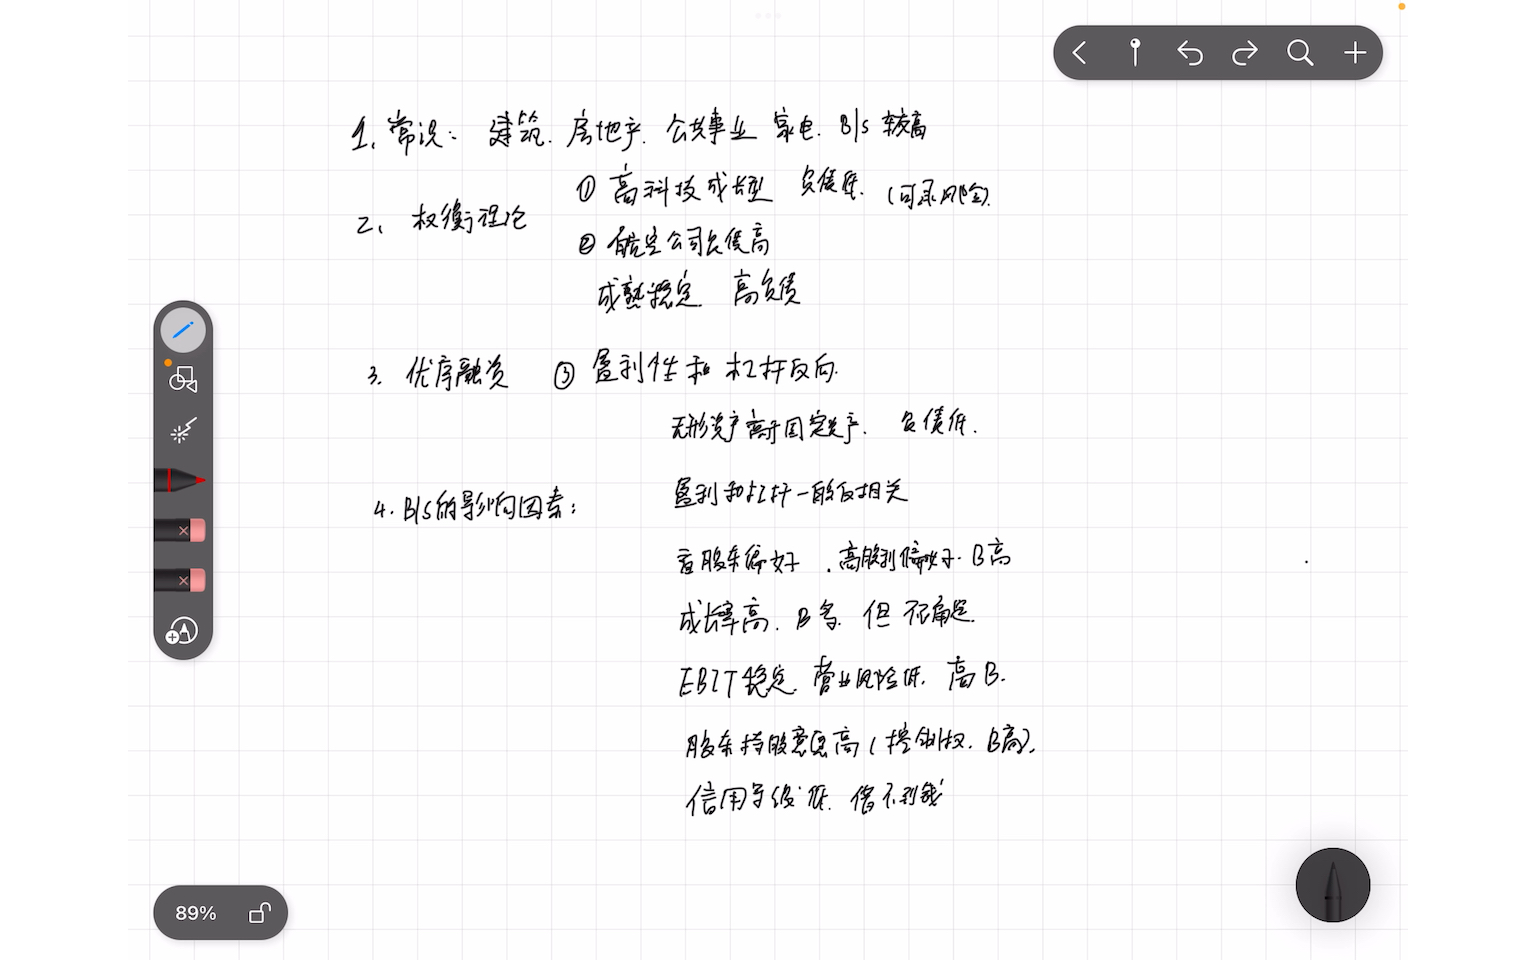 1. 常识: 建筑. 房地产. 公共事业 家电. B/S 较高
① 高科技成长型 负债低. (可承风险).
2. 权衡理论
② 航空公司负债高
成熟稳定. 高负债
3. 优序融资 ③ 盈利性和 杠杆反向.
无形资产高于固定资产. 负债低.
4. B/S的影响因素:
盈利和杠杆一般反相关
看股东偏好 . 高股利偏好. B高
成长率高. B多. 但 不确定.
EBIT稳定. 营业风险低. 高B.
股东持股意愿高 (控制权. B高).
信用等级低. 借不到钱
89%